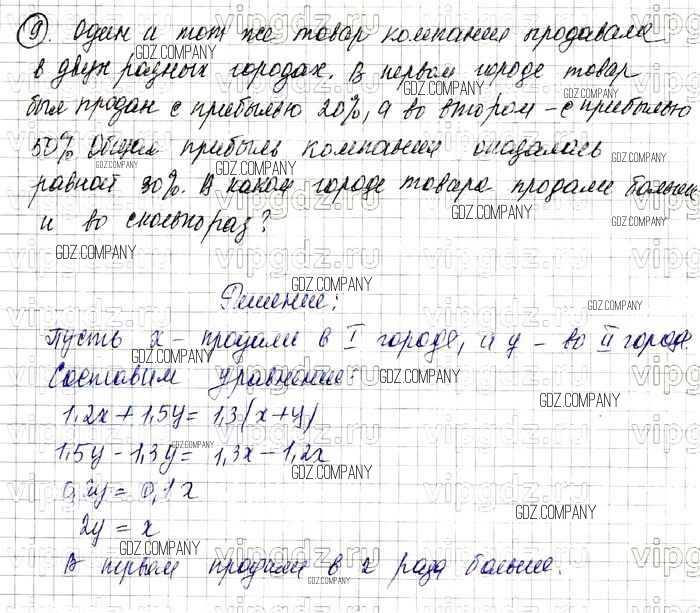 9. Один и тот же товар компания продавала
в двух разных городах. В первом городе товар
был продан с прибылью 20%, а во втором – с прибылью
50%. Общая прибыль компании оказалась
равной 30%. В каком городе товара продали больше
и во сколько раз?
Решение:
Пусть x - продали в I городе, и y - во II городе
Составим уравнение:
1,2x + 1,5y = 1,3(x+y)
1,5y - 1,3y = 1,3x - 1,2x
0,2y = 0,1x
2y = x
В первом продали в 2 раза больше.